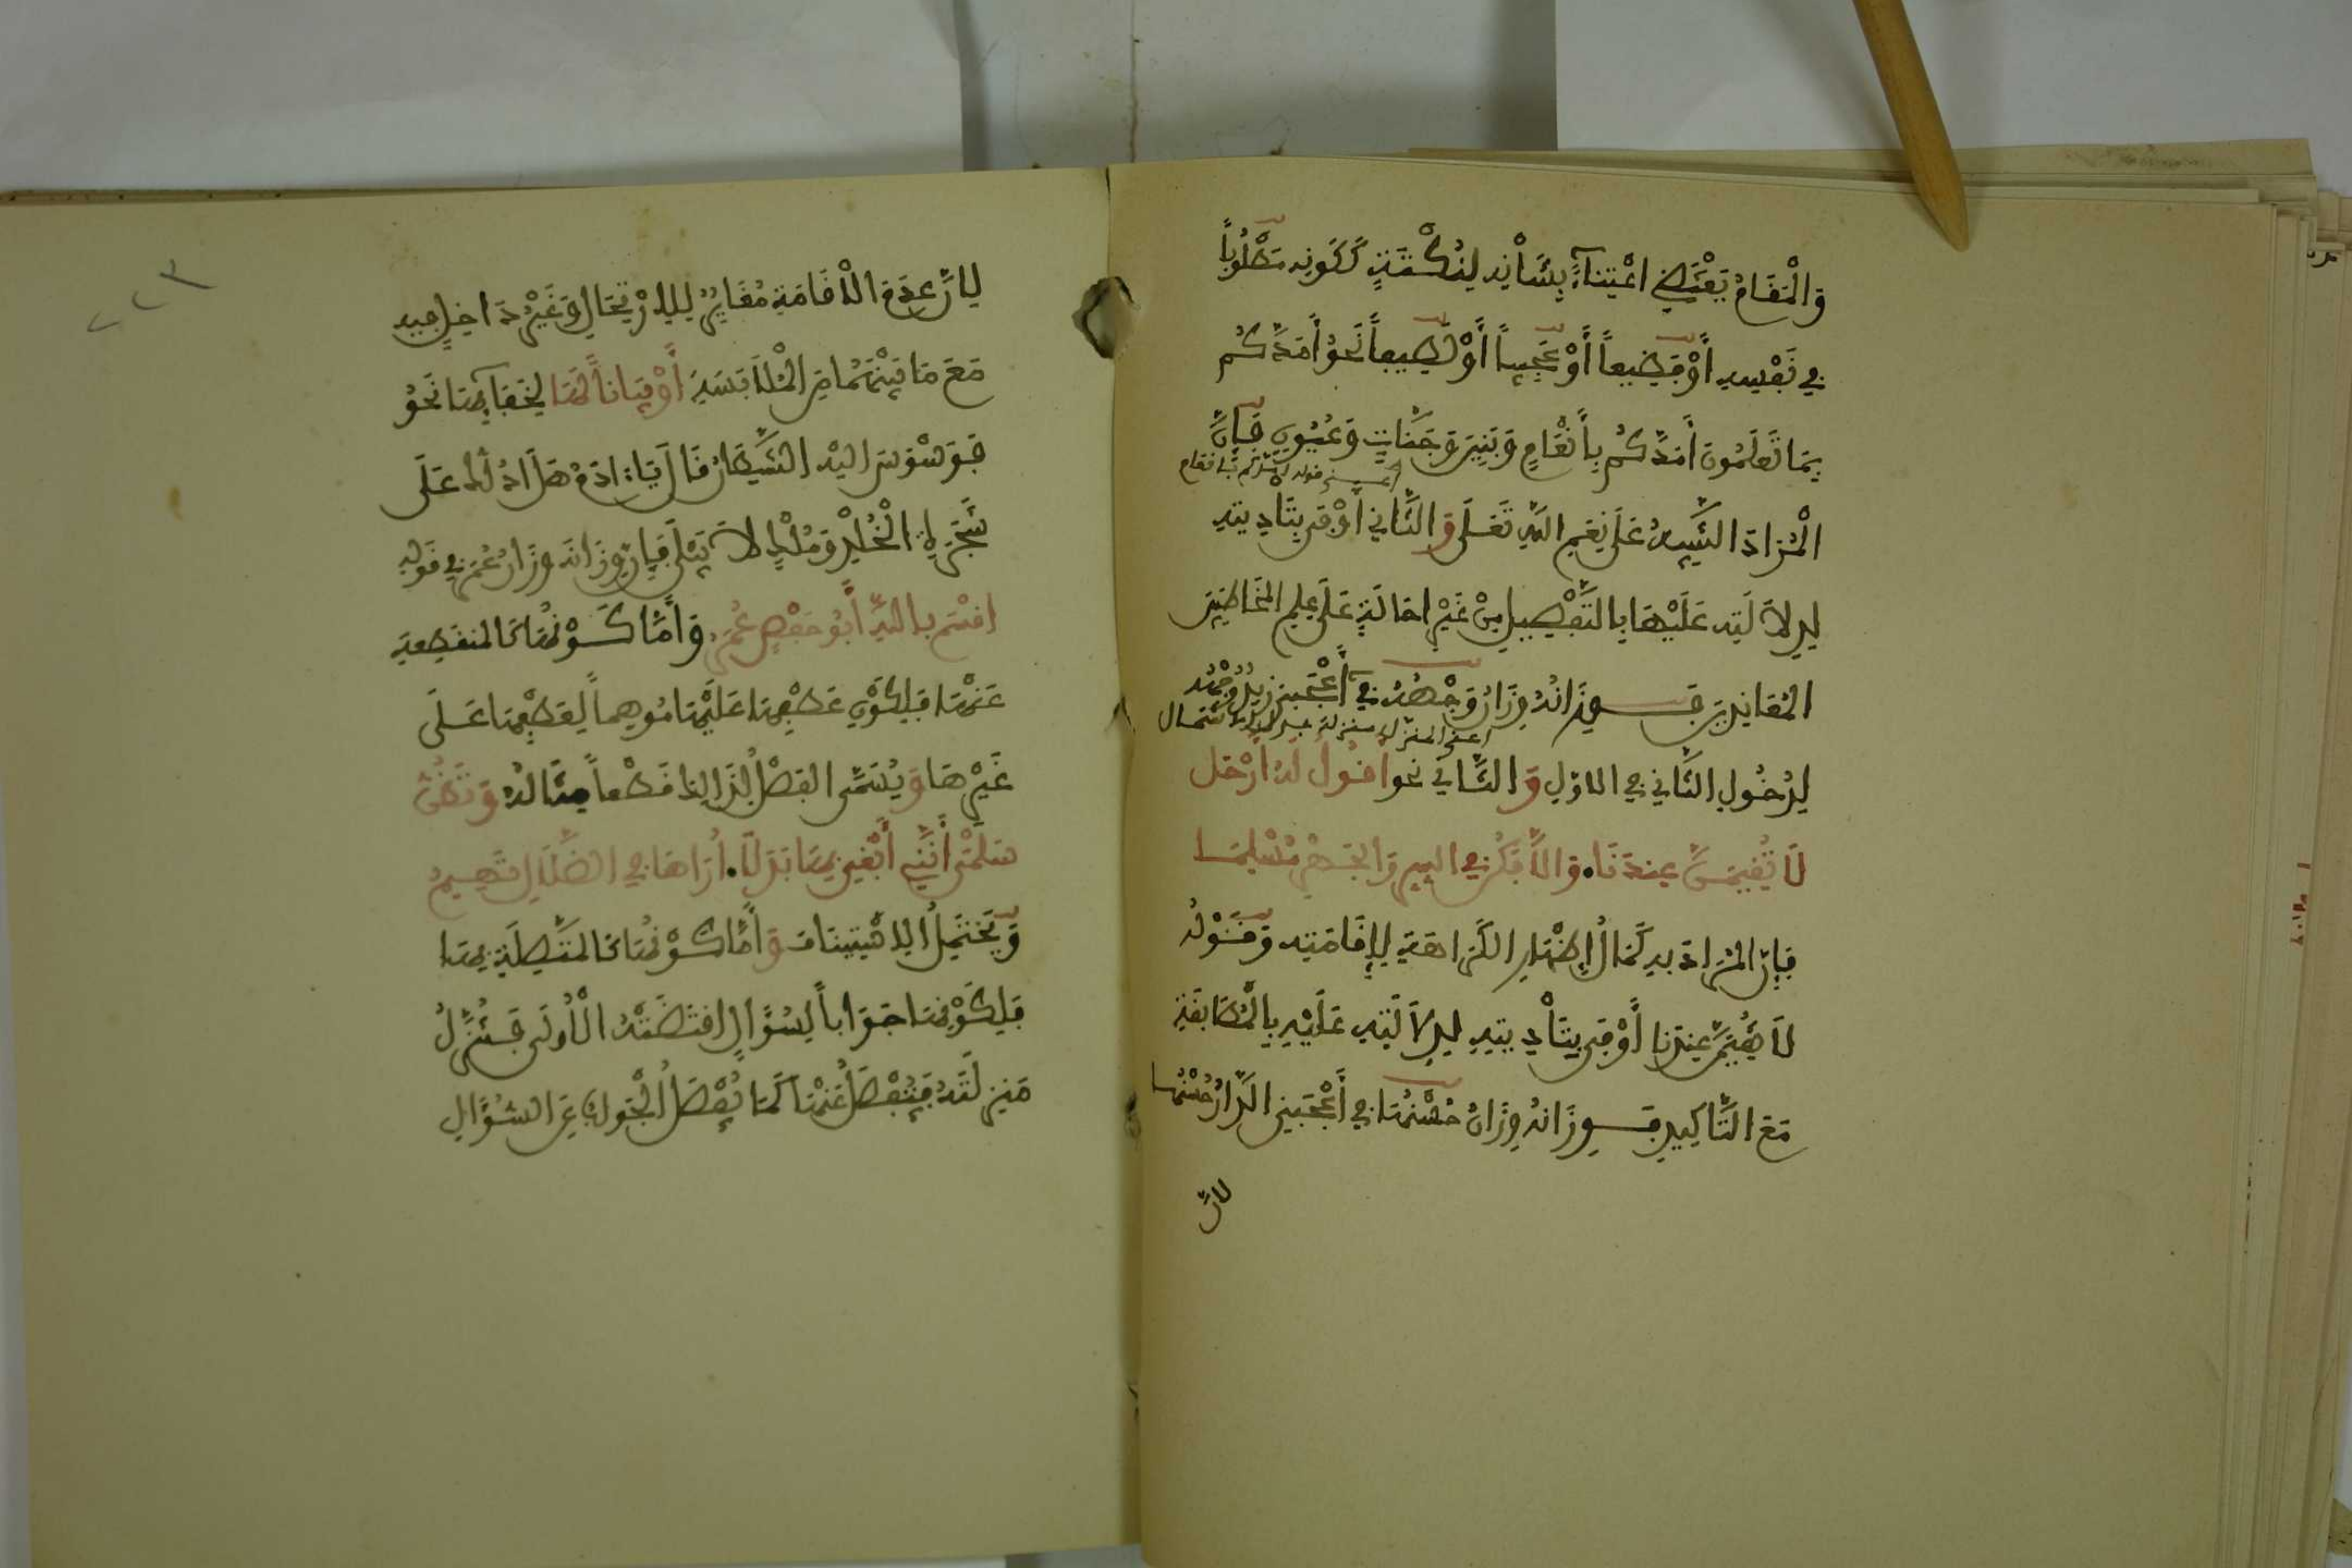 وَالْمَقَامُ يَقْتَضِي اعْتِنَاءً بِشَأْنِهِ لِنُكْتَةٍ كَكَوْنِهِ مَطْلُوباً
فِي نَفْسِهِ أَوْ فَظِيعاً أَوْ عَجِيباً أَوْ لَطِيفاً نَحْوُ أَمَدَّكُمْ
بِمَا تَعْلَمُونَ أَمَدَّكُمْ بِأَنْعَامٍ وَبَنِينَ وَجَنَّاتٍ وَعُيُونٍ فَإِنَّ
أعني قوله أمدكم بأنعام
الْمُرَادَ التَّنْبِيهُ عَلَى نِعَمِ اللَّهِ تَعَلَى وَالثَّانِي أَوْفَى بِتَأْدِيَتِهِ
لِدِلَالَتِهِ عَلَيْهَا بِالتَّفْصِيلِ مِنْ غَيْرِ احَالَةٍ عَلَى عِلْمِ الْمُخَاطَبِينَ
الْمُعَانِدِينَ فَوِزَانُهُ وِزَانُ وَجْهُهُ فِي أَعْجَبَنِي زَيْدٌ وَجْهُهُ
أعني المنزل منزلة بدل الاشتمال
لِدُخُولِ الثَّانِي فِي الاوَّلِ وَالثَّانِي نحو أَقُولُ لَهُ ارْحَل
لَا تُقِيمَنَّ عِنْدَنَا. وَالَّا فَكُنْ فِي السِّرِّ وَالْجَهْرِ مُسْلِمَا
فَإِنَّ الْمُرَادَ بِهِ كَمَالُ إِظْهَارِ الْكَرَاهَةِ لِإِقَامَتِهِ وَقَوْلُهُ
لَا تُقِيمَنَّ عِنْدَنَا أَوْفَى بِتَأْدِيَتِهِ لِدِلَالَتِهِ عَلَيْهِ بِالْمُطَابَقَةِ
مَعَ التَّاكِيدِ فَوِزَانُهُ وِزَانُ حُسْنُهَا فِي أَعْجَبَنِي الدَّارُ حُسْنُهَا
لانَّ
٢٢٣
لِانَّ عَدَمَ الْاقَامَةِ مُغَايِرٌ لِلِارْتِحَالِ وَغَيْرُ دَاخِلٍ فِيهِ
مَعَ مَا بَيْنَهُمَا مِنَ الْمُلَابَسَةِ أَوْ بَيَاناً لَهَا لِخَفَائِهَا نَحْوُ
فَوَسْوَسَ الَيْهِ الشَّيْطَانُ قَالَ يَا ادَمُ هَلْ ادُلُّكَ عَلَى
شَجَرَةِ الْخُلْدِ وَمُلْكٍ لَا يَبْلَى فَإِنَّ وِزَانَهُ وِزَانُ عُمَرَ فِي قَوْلِهِ
اقْسَمَ بِاللَّهِ أَبُو حَفْصٍ عُمَرْ وَأَمَّا كَوْنُهَا كَالْمُنْقَطِعَةِ
عَنْهَا فَلِكَوْنِ عَطْفِهَا عَلَيْهَا مُوهِماً لِعَطْفِهَا عَلَى
غَيْرِهَا وَيُسَمَّى الفَصْلُ لِذَالِكَ قَطْعاً مِثَالُهُ وَتَظُنُّ
سَلْمَى أَنَّنِي أَبْغِي بِهَا بَدَلاً. أُرَاهَا فِي الضَّلَالِ تَهِيمُ
وَيَحْتَمِلُ الِاسْتِينَاف وَأَمَّا كَوْنُهَا كَالْمُتَّصِلَةِ بِهَا
فَلِكَوْنِهَا جَوَاباً لِسُؤَالٍ اقْتَضَتْهُ الْأُولَى فَتُنَزَّلُ
مَنْزِلَتَهُ فَتُفْصَلُ عَنْهَا كَمَا يُفْصَلُ الْجَوَابُ عَنِ السُّؤَالِ